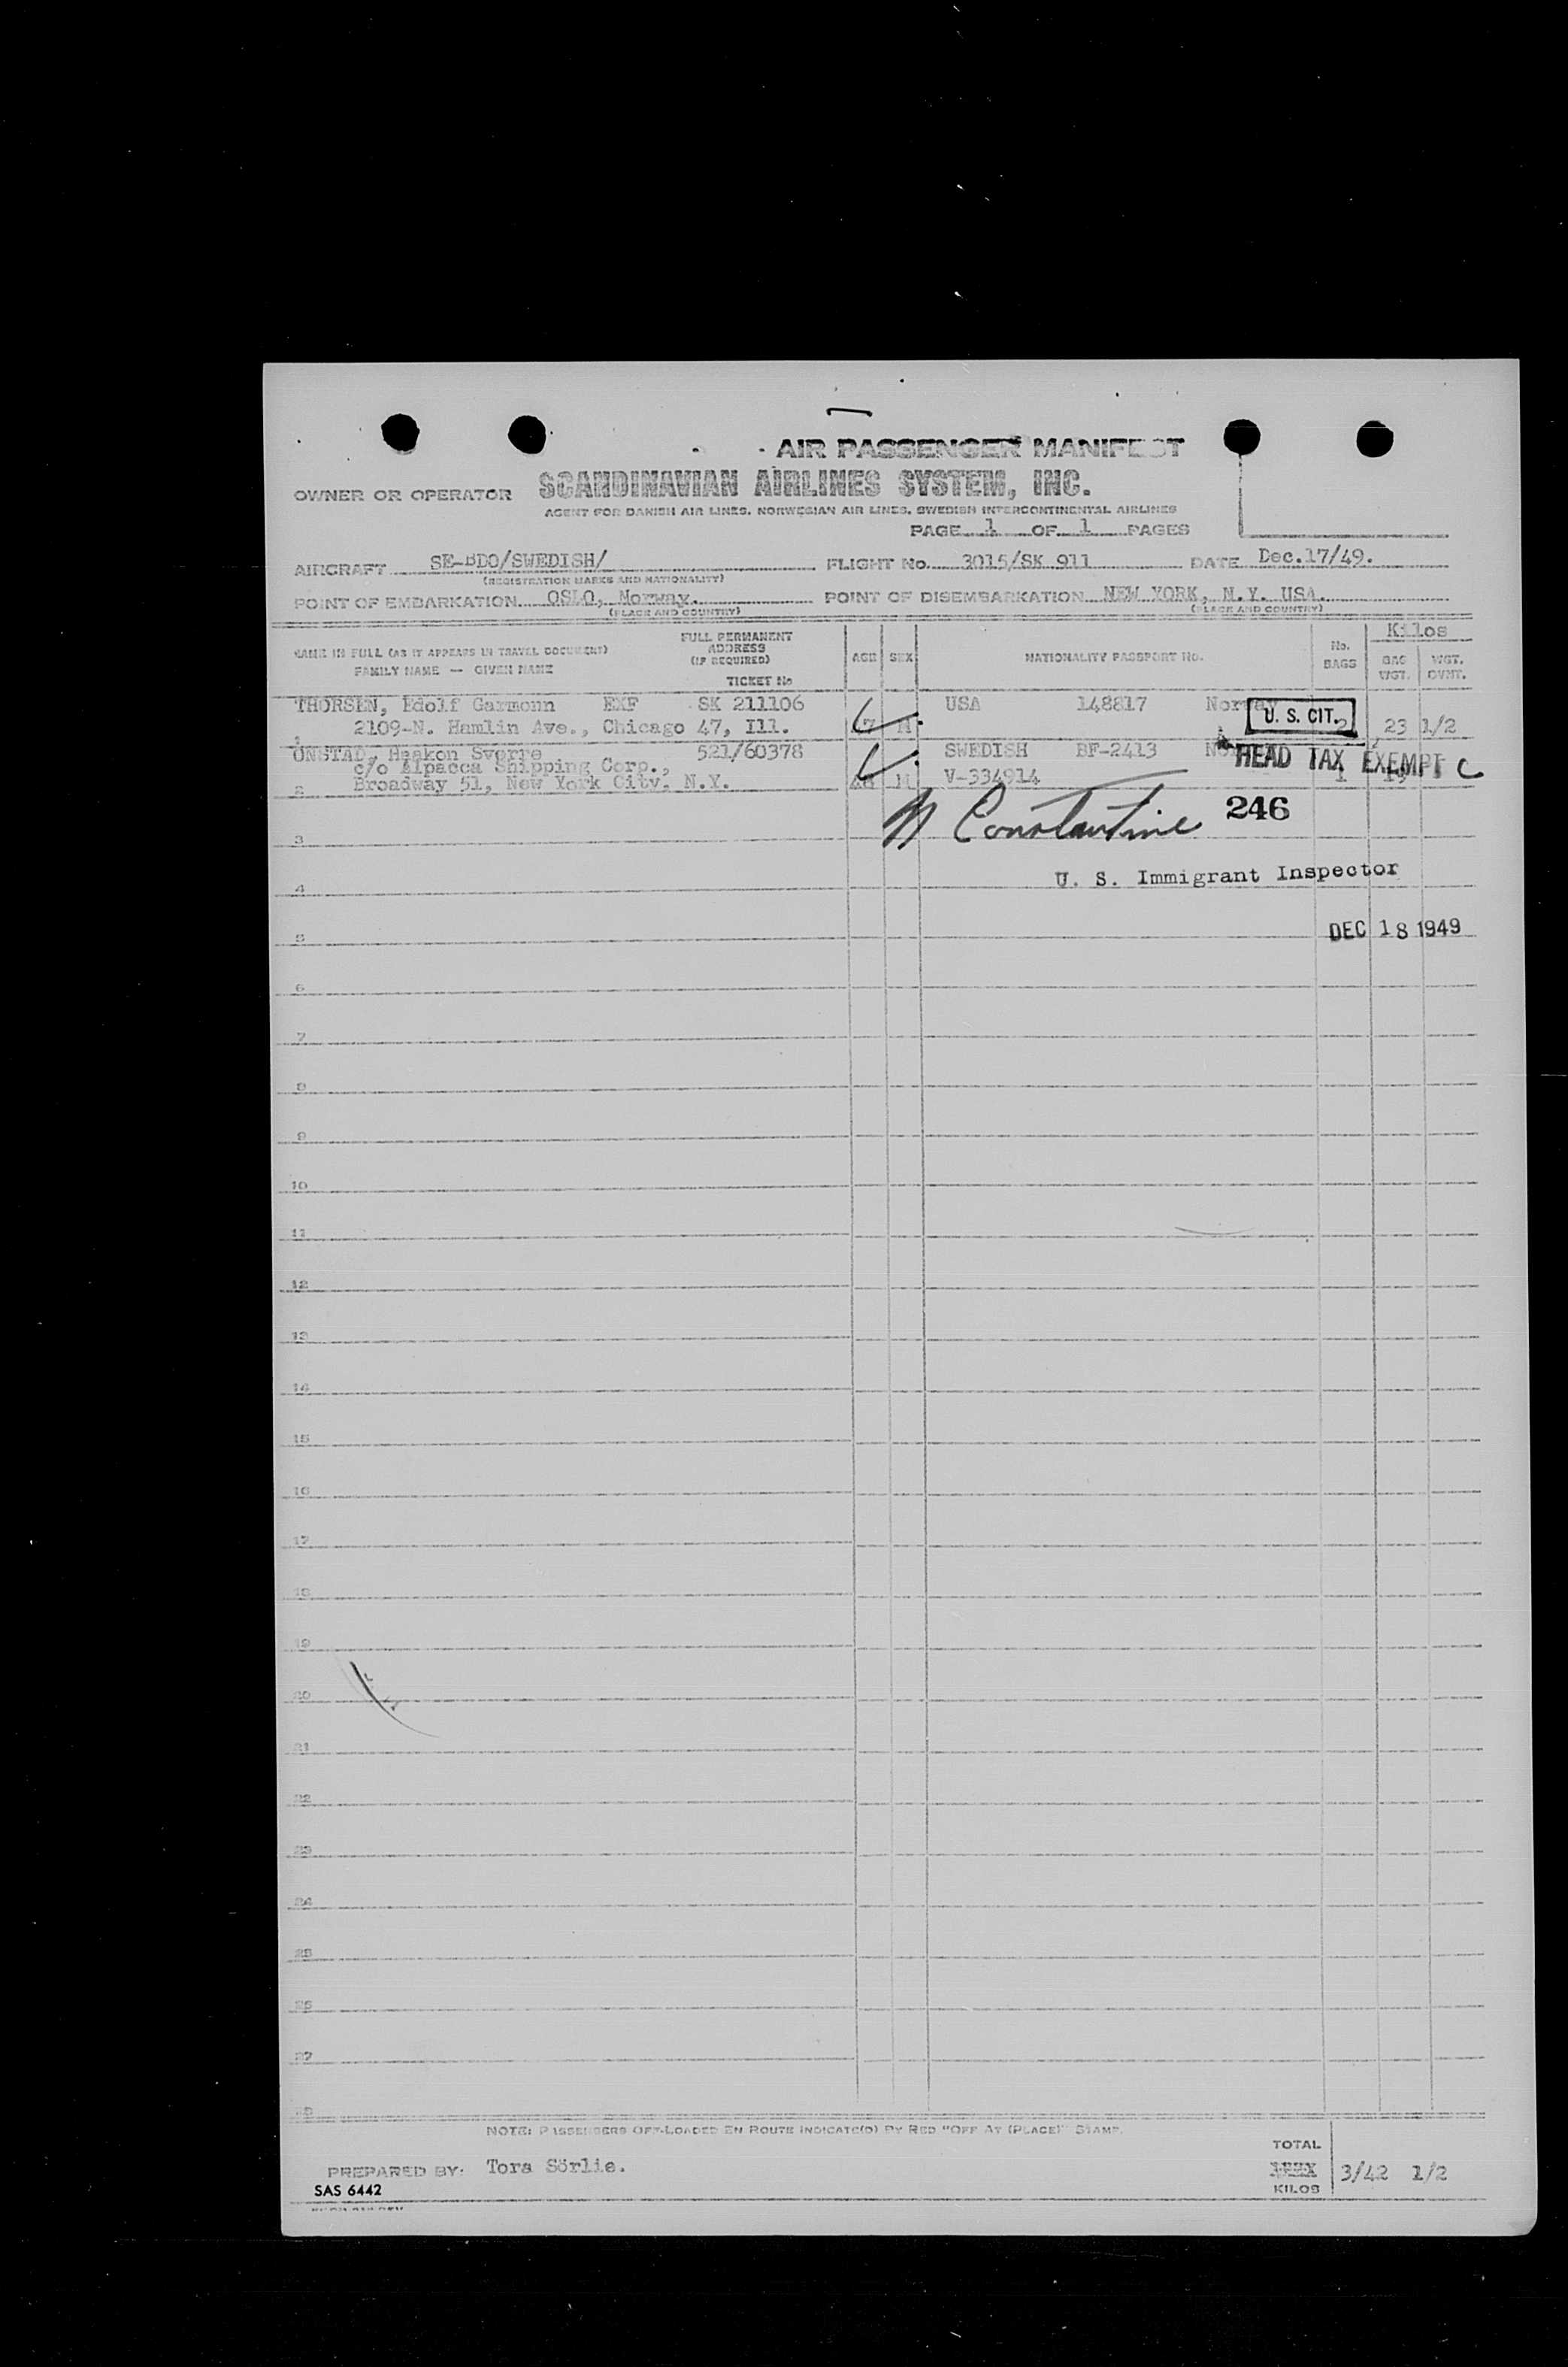 AIR PASSENGER MANIFEST
OWNER OR OPERATOR SCANDINAVIAN AIRLINES SYSTEM, INC.
AGENT FOR DANISH AIR LINES, NORWEGIAN AIR LINES, SWEDISH INTERCONTINENTAL AIRLINES
PAGE 1 OF 1 PAGES
AIRCRAFT SE-BDO/SWEDISH/ FLIGHT No. 3015/SK 911 DATE Dec.17/49.
(REGISTRATION MARKS AND NATIONALITY)
POINT OF EMBARKATION OSLO, Norway. POINT OF DISEMBARKATION NEW YORK, N.Y. USA.
(PLACE AND COUNTRY) (PLACE AND COUNTRY)
NAME IN FULL (AS IT APPEARS IN TRAVEL DOCUMENT)
FAMILY NAME — GIVEN NAME
FULL PERMANENT
ADDRESS
(IF REQUIRED)
TICKET No
AGE SEX NATIONALITY PASSPORT No. No. BAGS Kilos
BAG WGT. WGT. OVWT.
THORSEN, Edolf Garmonn EXF SK 211106 USA 148817 Norway
U. S. CIT.
1 2109-N. Hamlin Ave., Chicago 47, Ill. 47 M 2 23 1/2
ONSTAD, Haakon Sverre 521/60378 SWEDISH BF-2413
c/o Alpacca Shipping Corp., HEAD TAX EXEMPT C
2 Broadway 51, New York City, N.Y. 48 M V-334914 1 19
N Constantine 246
3
U. S. Immigrant Inspector
4
DEC 18 1949
5
6
7
8
9
10
11
12
13
14
15
16
17
18
19
20
21
22
23
24
25
26
27
28
NOTE: PASSENGERS OFF-LOADED EN ROUTE INDICATE(D) BY RED "OFF AT (PLACE)" STAMP.
TOTAL
PREPARED BY: Tora Sörlie. 3/42 1/2
SAS 6442 KILOS